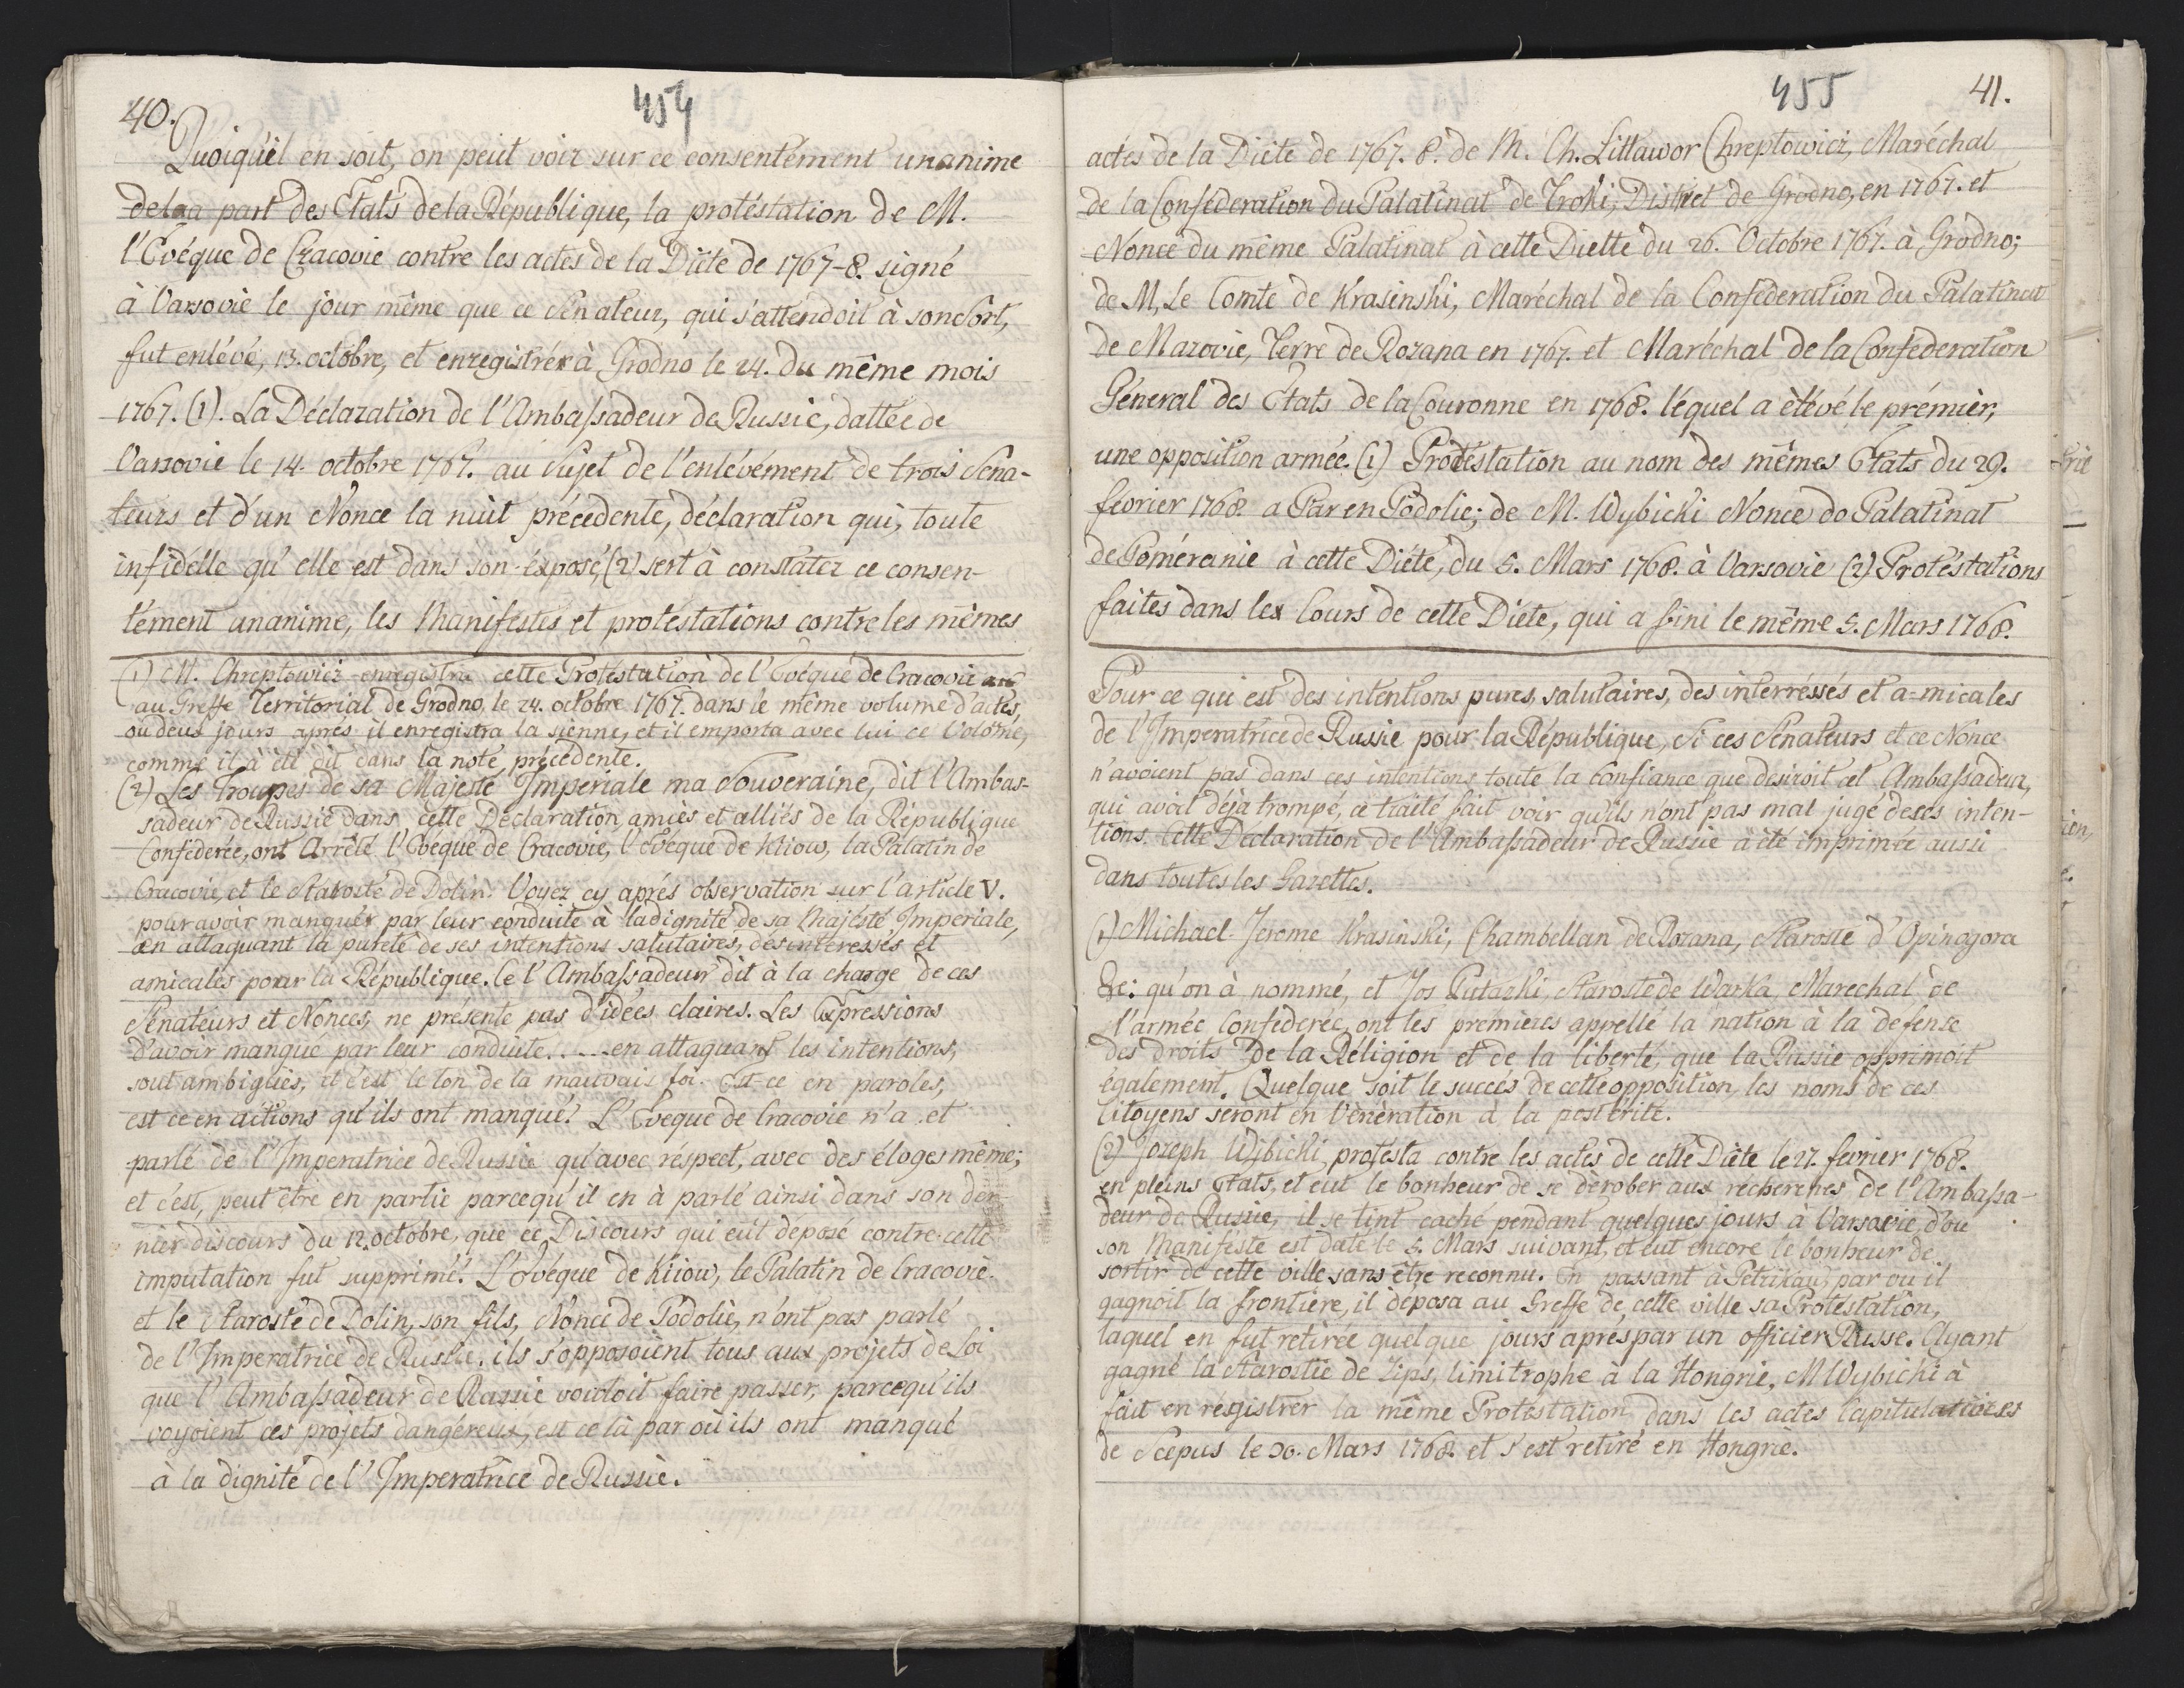 40.
454
Quoiqu'il en soit, on peut voir sur ce consentement unanime
de la part des Etats de la République, la protéstation de M.
l'Evéque de Cracovie contre les actes de la Diète de 1767-8. signé
à Varsovie le jour même que ce Sénateur, qui s'attendoit à son Sort,
fut enlévé, 13. octobre, et enregistrée à Grodno le 24. du même mois
1767. (1). La Déclaration de l'Ambassadeur de Russie, dattée de
Varsovie le 14. octobre 1767. au Sujet de l'enlévément de trois Séna-
teurs et d'un Nonce la nuit précedente, déclaration qui, toute
infidélle qu'elle est dans son éxposé, (2) sert à constater ce consen-
tément unanime, les Manifestes et protéstations contre les mêmes
(1) M. Chreptowicz enregistra cette Protéstation de l'Evéque de Cracovie
au Greffe Territorial de Grodno, le 24. octobre 1767. dans le même volume d'actes,
ou deux jours aprés il enregistra la sienne, et il emporta avec lui ce Volume,
comme il à été dit dans la note précédente.
(2) Les Troupes de sa Majesté Imperiale ma Souveraine, dit l'Ambas-
sadeur de Russie dans cette Déclaration, amies et alliés de la République
Conféderée, ont Arrêté l'Evéque de Cracovie, l'Evéque de Kiow, la Palatin de
Cracovie, et le Staroste de Dolin. Voyez cy aprés observation sur l'article V.
pour avoir manquér par leur conduite à la dignité de sa Majésté Imperiale,
en attaquant la pureté de ses intentions salutaires, desinteressés et
amicales pour la République. Ce l'Ambassadeur dit à la charge de ces
Sénateurs et Nonces, ne présente pas d'idées claires. Les Expressions
d'avoir manqué par leur conduite.....en attaquant les intentions,
sont ambigües, et c'est le ton de la mauvais foi. Est-ce en paroles,
est ce en actions qu'ils ont manqué? L'Eveque de Cracovie n'a et
parlé de l'Imperatrice de Russie qu'avec réspect, avec des éloges même;
et c'est, peut être en partie parcequ'il en à parlé ainsi dans son der-
nier discours du 12. octobre, que ce Discours qui eût deposé contre cette
imputation fut supprimé? L'Evéque de Kiiow, le Palatin de Cracovie
et le Staroste de Dolin, son fils, Nonce de Podolie, n'ont pas parlé
de l'Imperatrice de Russie. ils s'opposoient tous aux projets de Loi
que l'Ambassadeur de Russie vouloit faire passer, parcequ'ils
voyoient ces projets dangéreux, est ce là par où ils ont manqué
à la dignité de l'Imperatrice de Russie.
455
41.
actes de la Diéte de 1767. 8. de M. Ch. Littawor Chreptowicz, Maréchal
de la Conféderation du Palatinat de Troki, District de Grodno, en 1767. et
Nonce du même Palatinat à cette Diette du 26. Octobre 1767. à Grodno;
de M. Le Comte de Krasinski, Maréchal de la Conféderation du Palatinat
de Mazovie, Terre de Rozana en 1767. et Maréchal de la Conféderation
Géneral des Etats de la Couronne en 1768. léquel a élévé le prémier,
une opposition armée. (1) Protéstation au nom des mêmes Etats du 29.
fevrier 1768. a Bar en Podolie; de M. Wybicki Nonce do Palatinat
de Poméranie à cette Diéte, du 5. Mars 1768. à Varsovie (2) Protéstations
faites dans lex Cours de cette Diéte, qui a fini le même 5. Mars 1768.
Pour ce qui est des intentions pures, salutaires, des interréssés et a-micales
de l'Imperatrice de Russie pour la République, Si ces Sénateurs et ce Nonce
n'avoient pas dans ces intentions toute la confiance que desiroit cet Ambassadeur,
qui avoit déja trompé, ce traité fait voir qu'ils n'ont pas mal jugé de ses inten-
tions. Cette Declaration de l'Ambassadeur de Russie à été imprimée aussi
dans toutes les Gazettes.
(1) Michael Jerome Krasinski, Chambellan de Rozana, Staroste d'Opinogora
&c: qu'on à nommé, et Jos Pulazki, Staroste de Warka, Marechal de
l'armée Conféderée, ont les premieres appellé la nation à la defense
des droits de la Réligion et de la liberté, que la Russie opprimoit
également. Quelque soit le succés de cette opposition, les noms de ces
Citoyens seront en Vénération à la postérité.
(2) Jozeph Wybicki, protésta contre les actes de cette Diéte le 27. fevrier 1768.
en pleins Etats, et eut le bonheur de se dérober aux récherches de l'Ambassa-
deur de Russie, il se tint caché pendant quelques jours à Varsovie, d'ou
son Manifeste est daté le 5. Mars suivant, et eut encore le bonheur de
sortir de cette ville sans être reconnu. En passant à Petrikau, par ou il
gagnoit la frontiere, il déposa au Greffe de cette ville sa Protéstation,
laquel en fut retirée quelque jours aprés par un officier Russe. Ayant
gagné la Starostie de Zips, limitrophe à la Hongrie, M Wybicki à
fait en régistrer la même Protéstation dans les actes Capitulatoires
de Scepus le 30. Mars 1768. et s'est retiré en Hongrie.